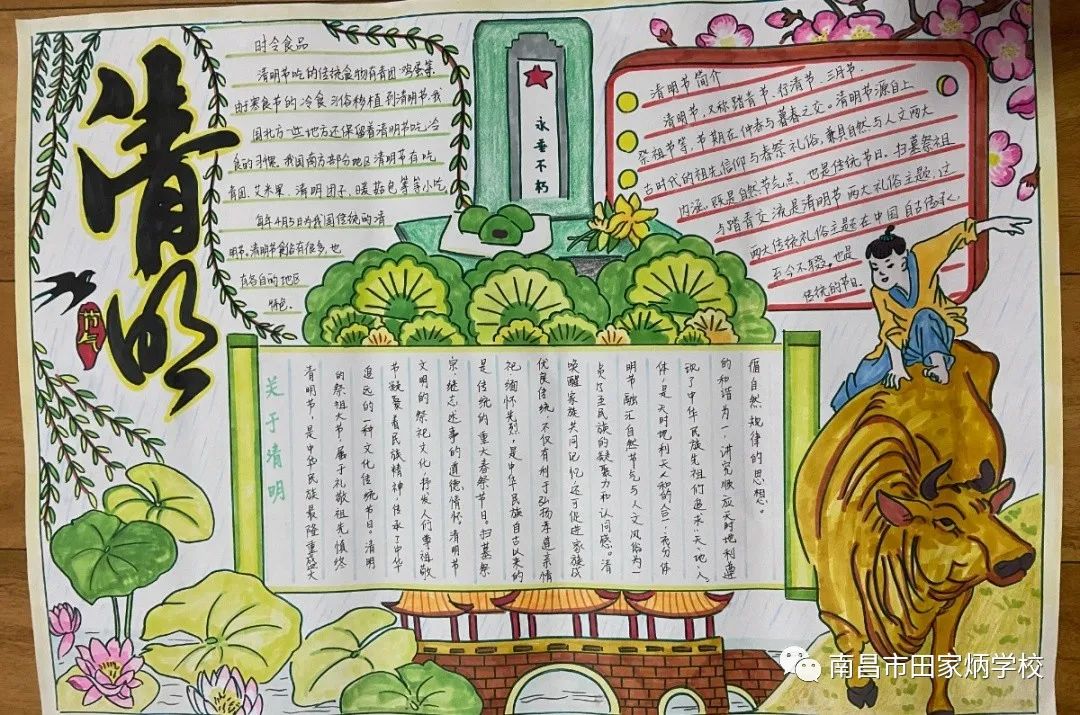 清明
节气
时令食品
清明节吃的传统食物有青团、鸡蛋等。
由于寒食节的冷食习俗移植到清明节,我
国北方一些地方还保留着清明节吃冷
食的习惯。我国南方部分地区清明节有吃
青团、艾米果、清明团子、暖菇包等等小吃。
每年4月5日为我国传统的清
明节,清明节食俗有很多,也
有各自的地区
特色。
永垂不朽
清明节简介
清明节,又称踏青节、行清节、三月节、
祭祖节等,节期在仲春与暮春之交。清明节源自上
古时代的祖先信仰与春祭礼俗,兼具自然与人文两大
内涵,既是自然节气点,也是传统节日。扫墓祭祖
与踏青交流是清明节两大礼俗主题,这
两大传统礼俗主题在中国自古传承,
至今不辍,也是
传统的节日。
关于清明
清明节,是中华民族最隆重盛大
的祭祖大节,属于礼敬祖先慎终
追远的一种文化传统节日。清明
节凝聚着民族精神,传承了中华
文明的祭祀文化,抒发人们尊祖敬
宗、继志述事的道德情怀。清明节
是传统的重大春祭节日。扫墓祭
祀、缅怀先烈,是中华民族自古以来的
优良传统,不仅有利于弘扬孝道亲情
唤醒家族共同记忆,还可促进家族成
员乃至民族的凝聚力和认同感。清
明节融汇自然节气与人文风俗为一
体,是天时地利人和的合一,充分体
现了中华民族先祖们追求“天地、人”
的和谐合一,讲究顺应天时地利遵
循自然规律的思想。
南昌市田家炳学校